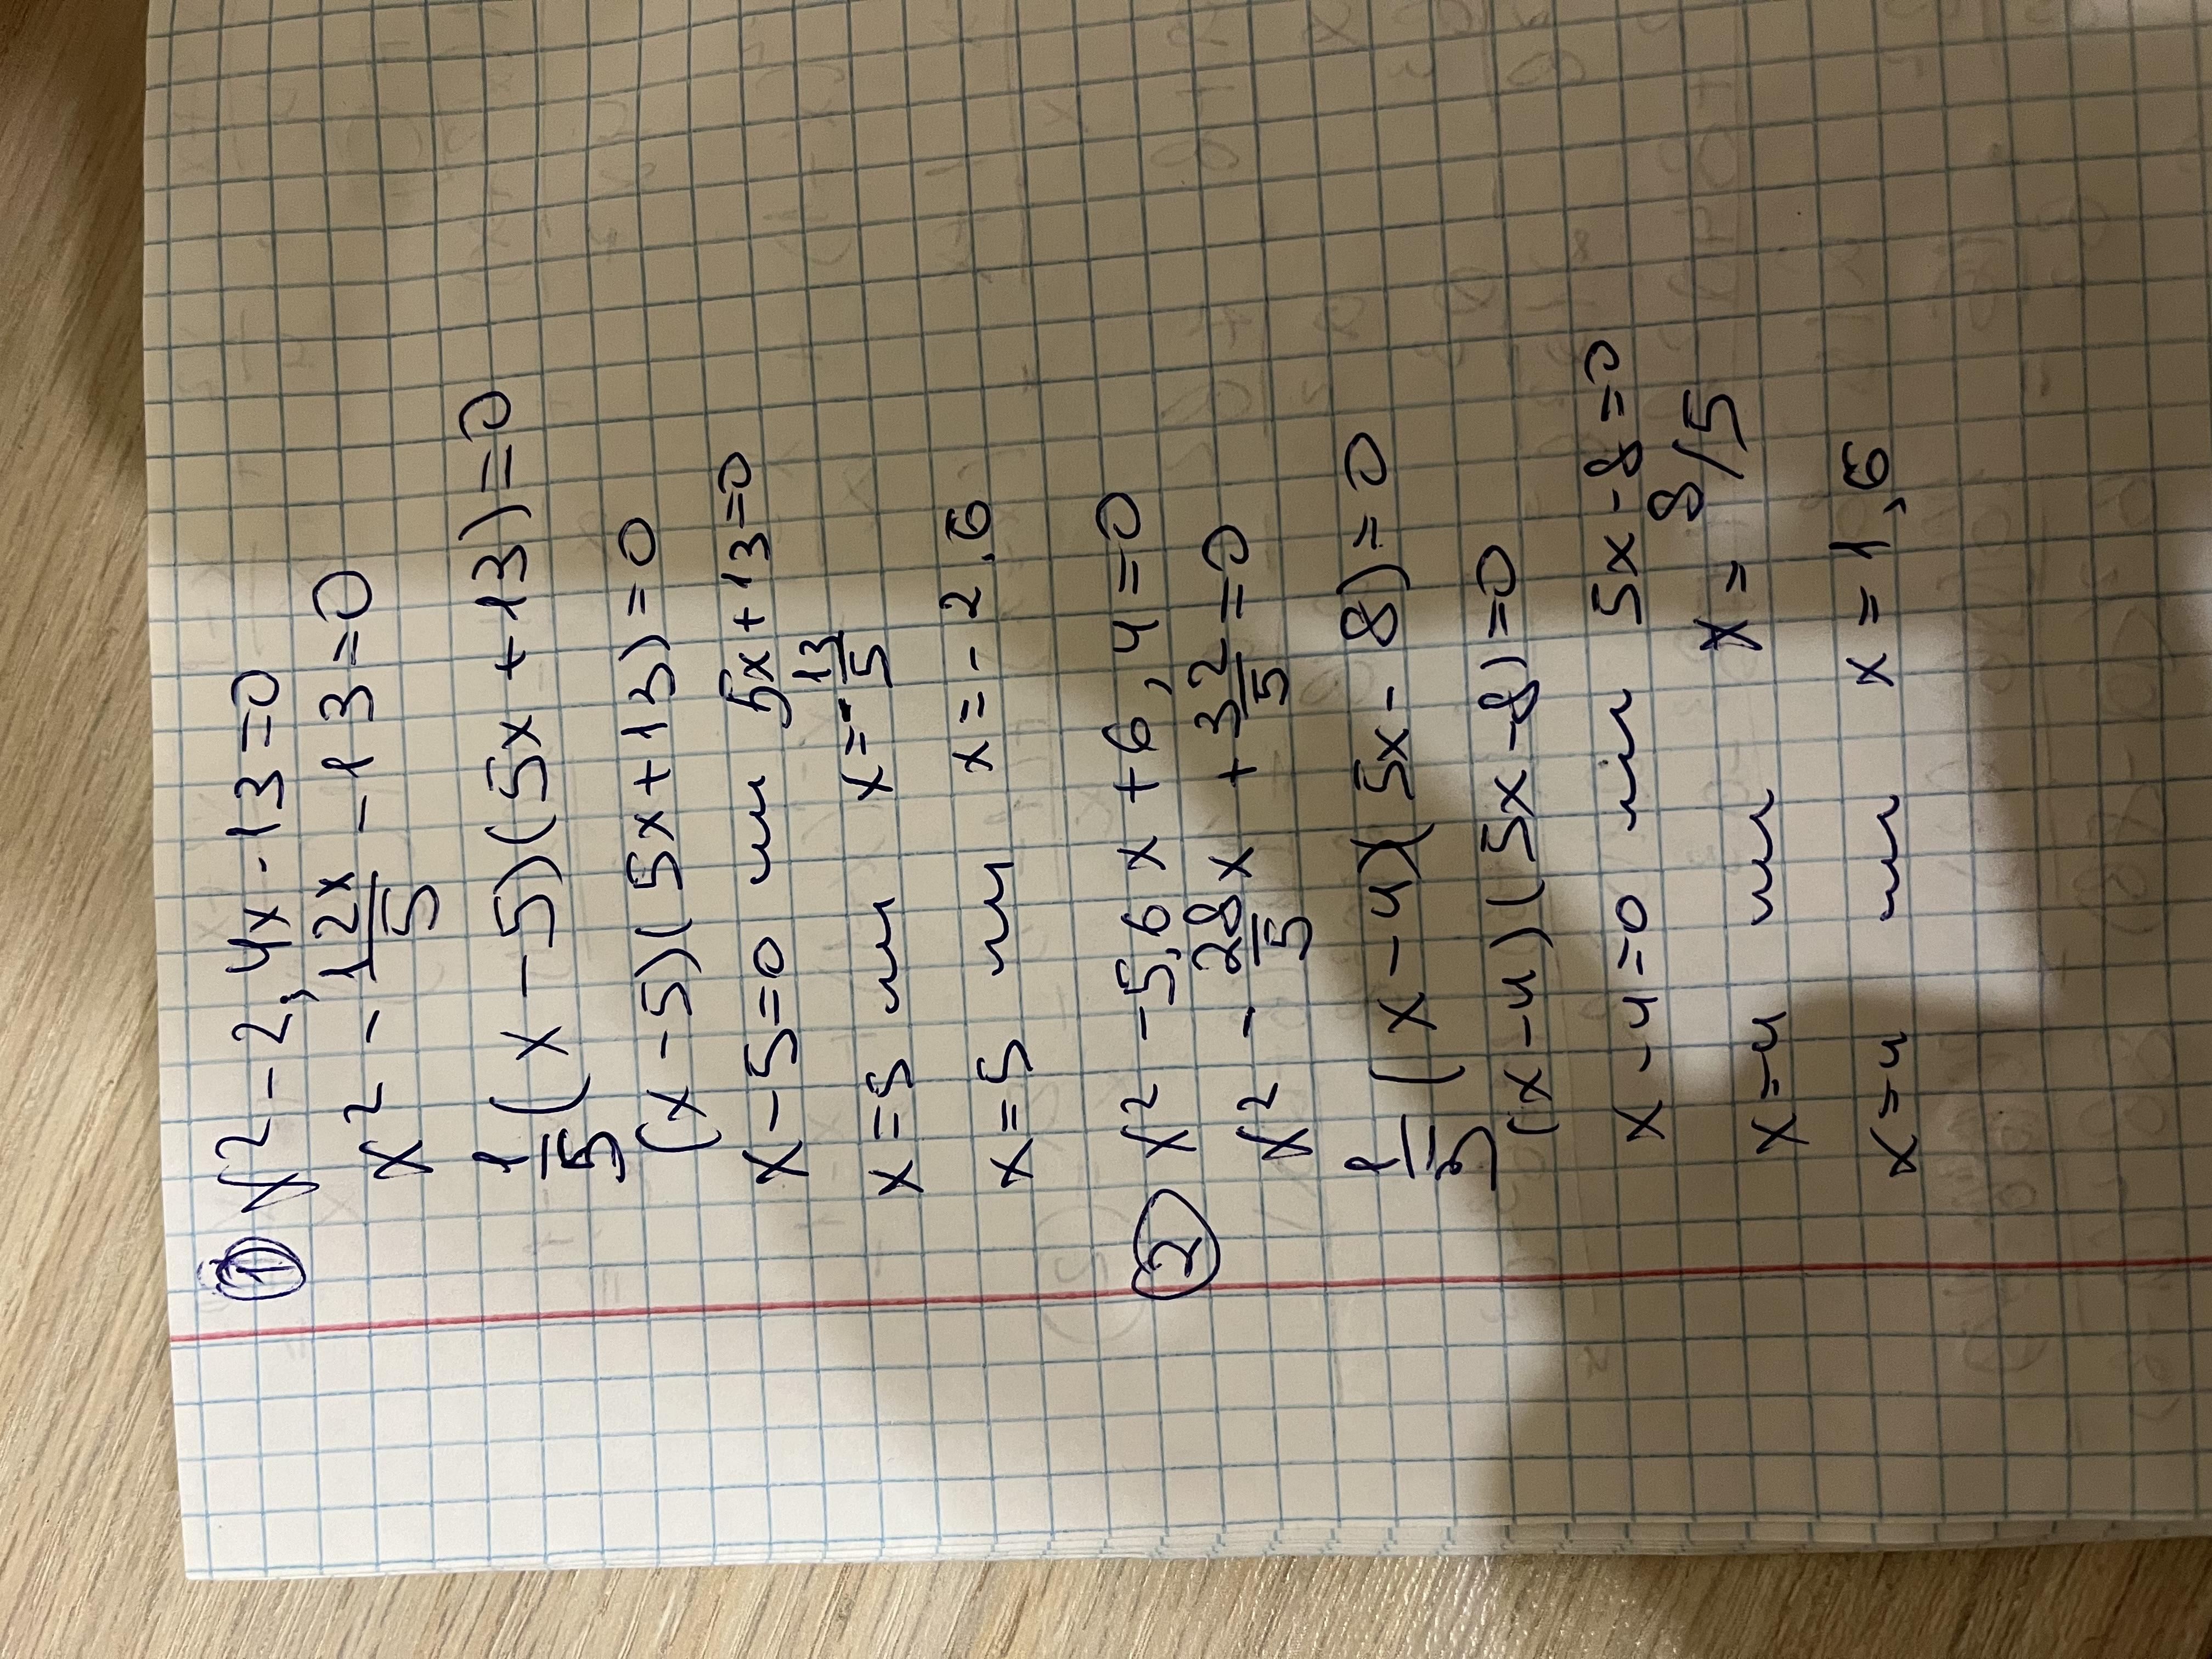 ① x² - 2,4x - 13 = 0
x² - 12x/5 - 13 = 0
1/5 (x - 5)(5x + 13) = 0
(x - 5)(5x + 13) = 0
x - 5 = 0 или 5x + 13 = 0
x = 5 или x = - 13/5
x = 5 или x = - 2,6
② x² - 5,6x + 6,4 = 0
x² - 28x/5 + 32/5 = 0
1/5 (x - 4)(5x - 8) = 0
(x - 4)(5x - 8) = 0
x - 4 = 0 или 5x - 8 = 0
x = 4 или x = 8/5
x = 4 или x = 1,6